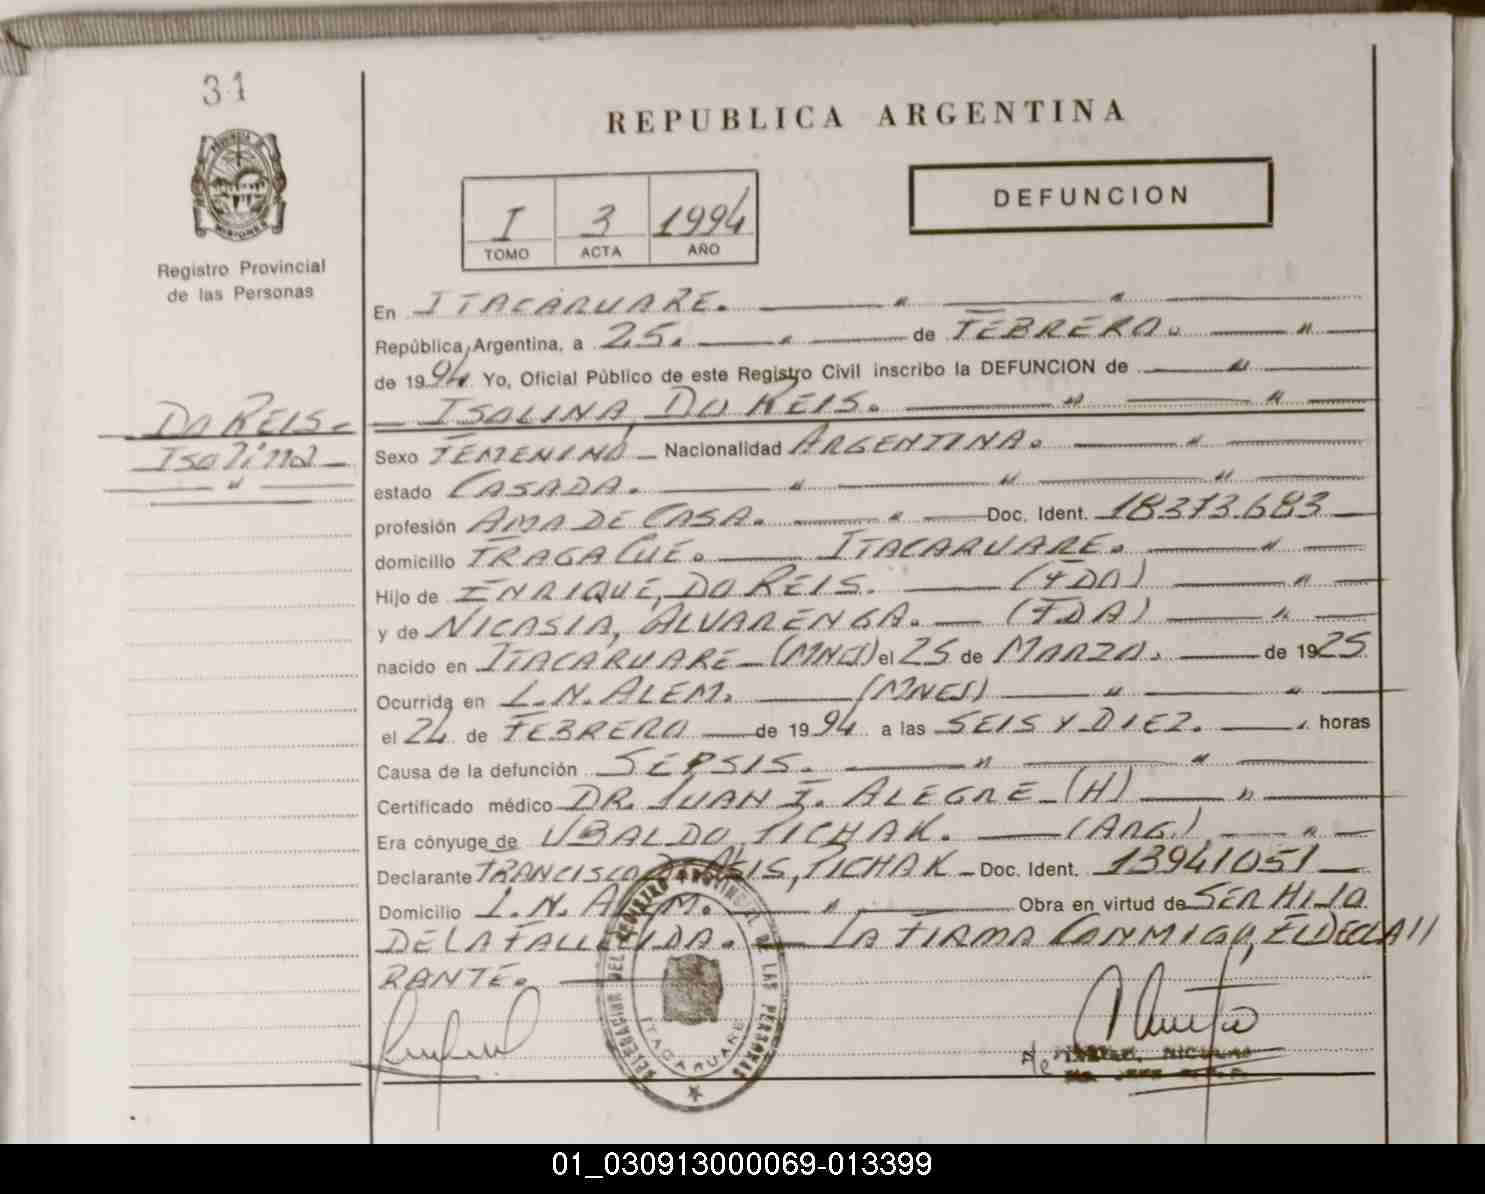 31
REPUBLICA ARGENTINA
PROVINCIA DE
MISIONES
Registro Provincial
de las Personas
I 3 1994
TOMO ACTA AÑO
DEFUNCION
En ITACARUARE.
República Argentina, a 25. de FEBRERO.
de 1994. Yo, Oficial Público de este Registro Civil inscribo la DEFUNCION de
ISOLINA, DO REIS.
DO REIS.
Isolina
Sexo FEMENINO Nacionalidad ARGENTINA.
estado CASADA.
profesión AMA DE CASA. Doc. Ident. 18373.683
domicilio FRAGA CUÉ. ITACARUARE.
Hijo de ENRIQUE, DO REIS. (FDO)
y de NICASIA, ALVARENGA. (FDA)
nacido en ITACARUARE (MNES) el 25 de MARZO. de 1925.
Ocurrida en L.N. ALEM. (MNES)
el 24 de FEBRERO de 1994 a las SEIS Y DIEZ. horas
Causa de la defunción SEPSIS.
Certificado médico DR. JUAN I. ALEGRE (H)
Era cónyuge de UBALDO, TICHAK. (ARG.)
Declarante FRANCISCO DE ASIS, TICHAK Doc. Ident. 13941051
Domicilio L.N. ALEM. Obra en virtud de SER HIJO
DE LA FALLECIDA. LA FIRMA CONMIGO, EL DECLA//
RANTE.
DELEGACION DEL REGISTRO PROVINCIAL DE LAS PERSONAS
ITACARUARE
01_030913000069-013399